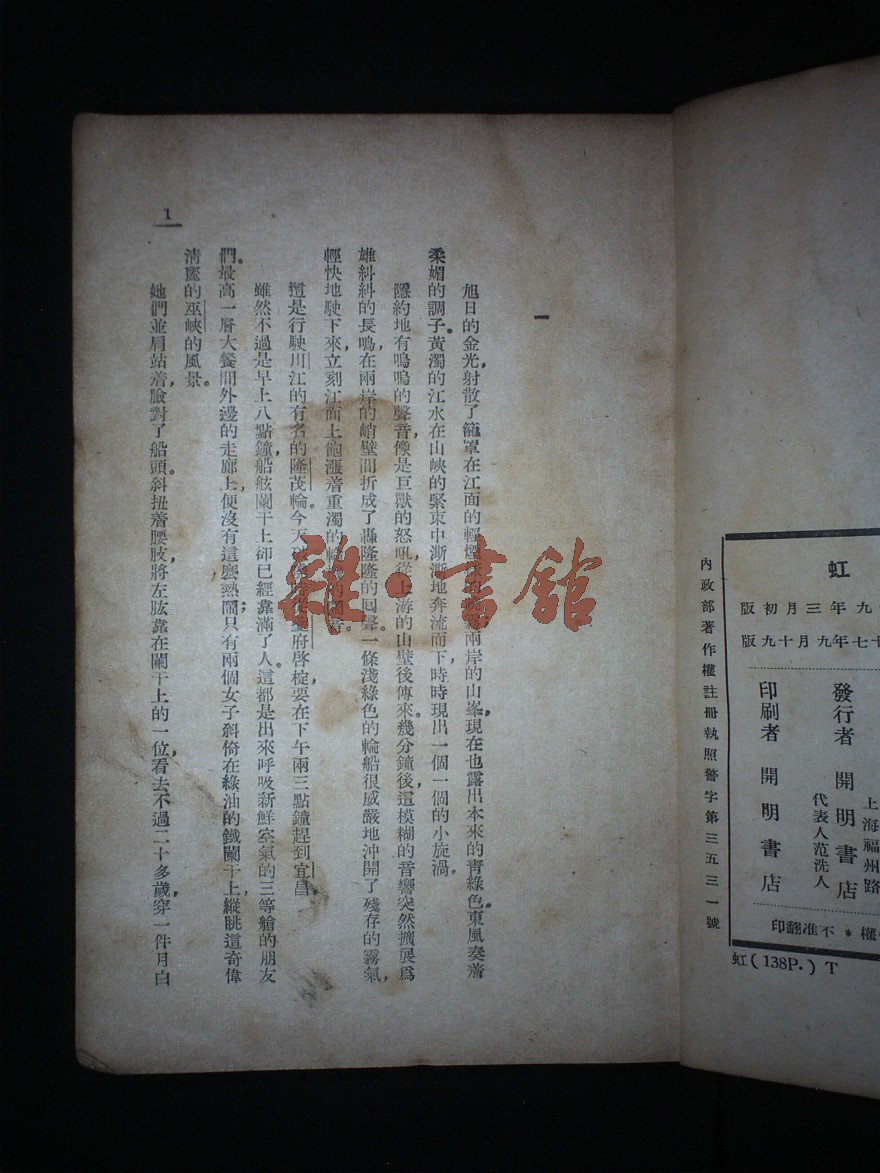 一
旭日的金光，射散了籠罩在江面的輕煙兩岸的山峯，現在也露出本來的靑綠色。東風奏着
柔媚的調子。黃濁的江水在山峽的緊束中澌澌地奔流而下，時時現出一個一個的小旋渦。
隱約地有嗚嗚的聲音，像是巨獸的怒吼，從上游的山壁後傳來。幾分鐘後，這模糊的音響突然擴展爲
雄糾糾的長鳴，在兩岸的峭壁間折成了轟隆隆的囘聲。一條淺綠色的輪船很威嚴地沖開了殘存的霧氣，
輕快地駛下來，立刻江面上飽漲着重濁的
這是行駛川江的有名的隆茂輪。今天府啓椗，要在下午兩三點鐘趕到宜昌。
雖然不過是早上八點鐘，船舷闌干上卻已經靠滿了人。這都是出來呼吸新鮮空氣的三等艙的朋友
們。最高一層大餐間外邊的走廊上，便沒有這麽熱鬧；只有兩個女子斜倚在綠油的鐵闌干上，縱眺這奇偉
淸麗的巫峽的風景。
她們並肩站着，臉對了船頭。斜扭着腰肢，將左肱靠在闌干上的一位，看去不過二十多歲，穿一件月白
1
雜·書館
虹
九年三月初版
十七年九月十九版
發行者 開明書店
上海福州路
代表人范洗人
印刷者 開明書店
權＊不准翻印
內政部著作權註冊執照警字第三五三一號
虹(138P.) T